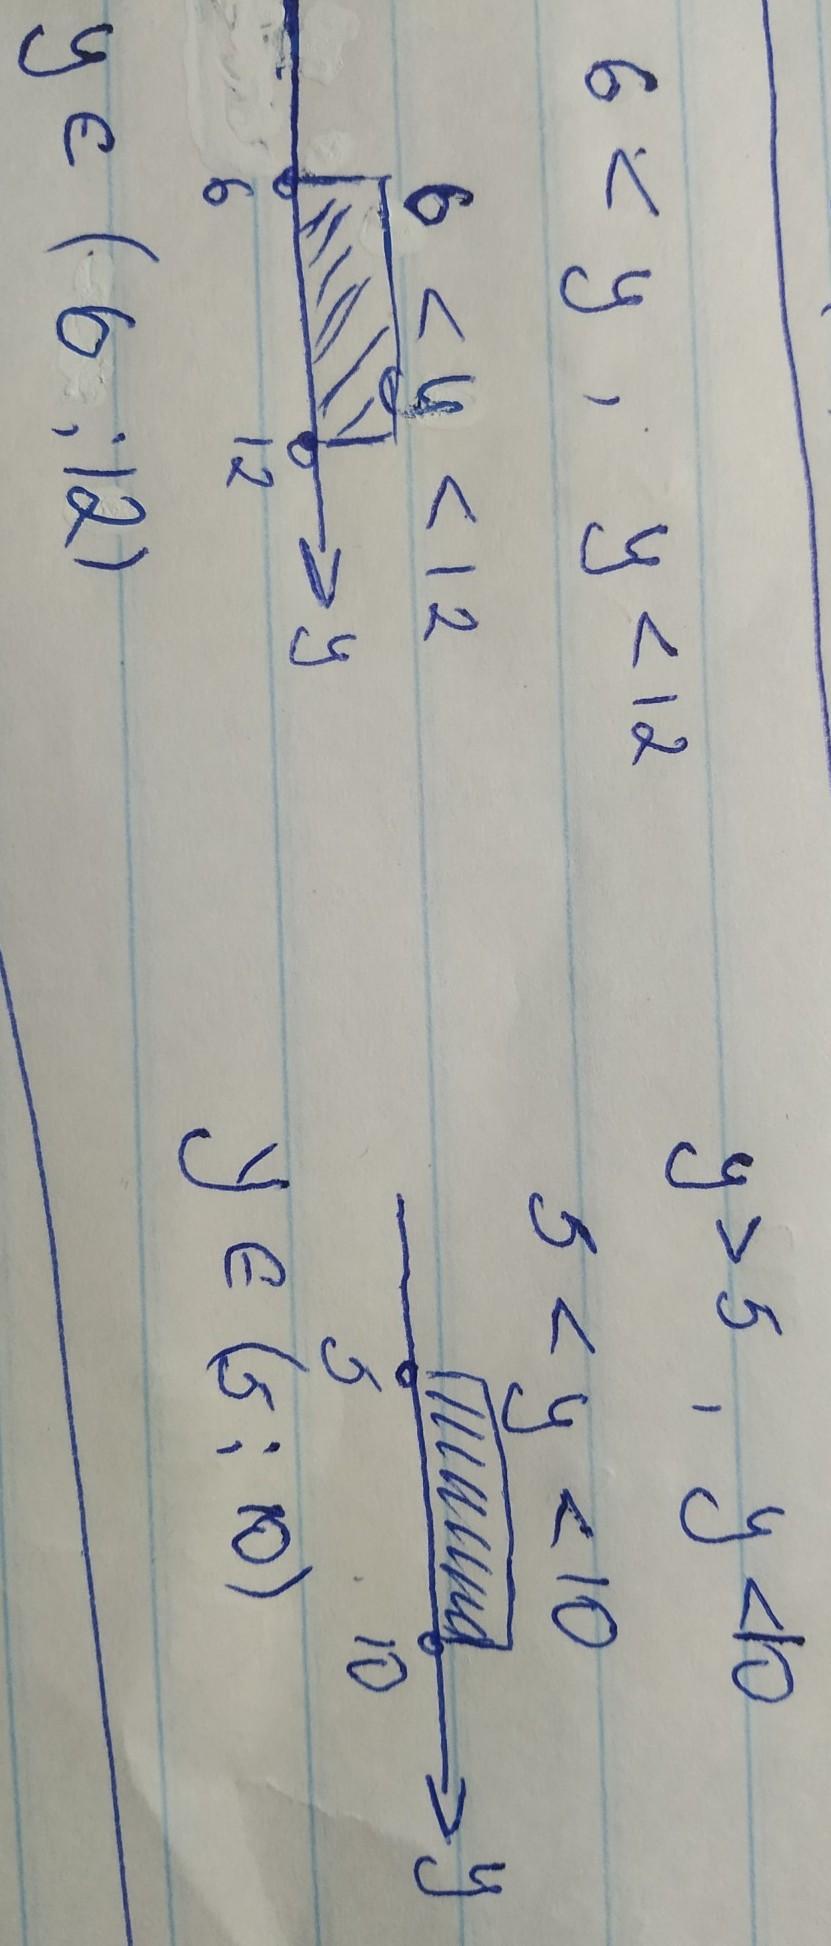 6 < y, y < 12
6 < y < 12
6 12 y
y ∈ (6; 12)
y > 5, y < 10
5 < y < 10
5 10 y
y ∈ (5; 10)